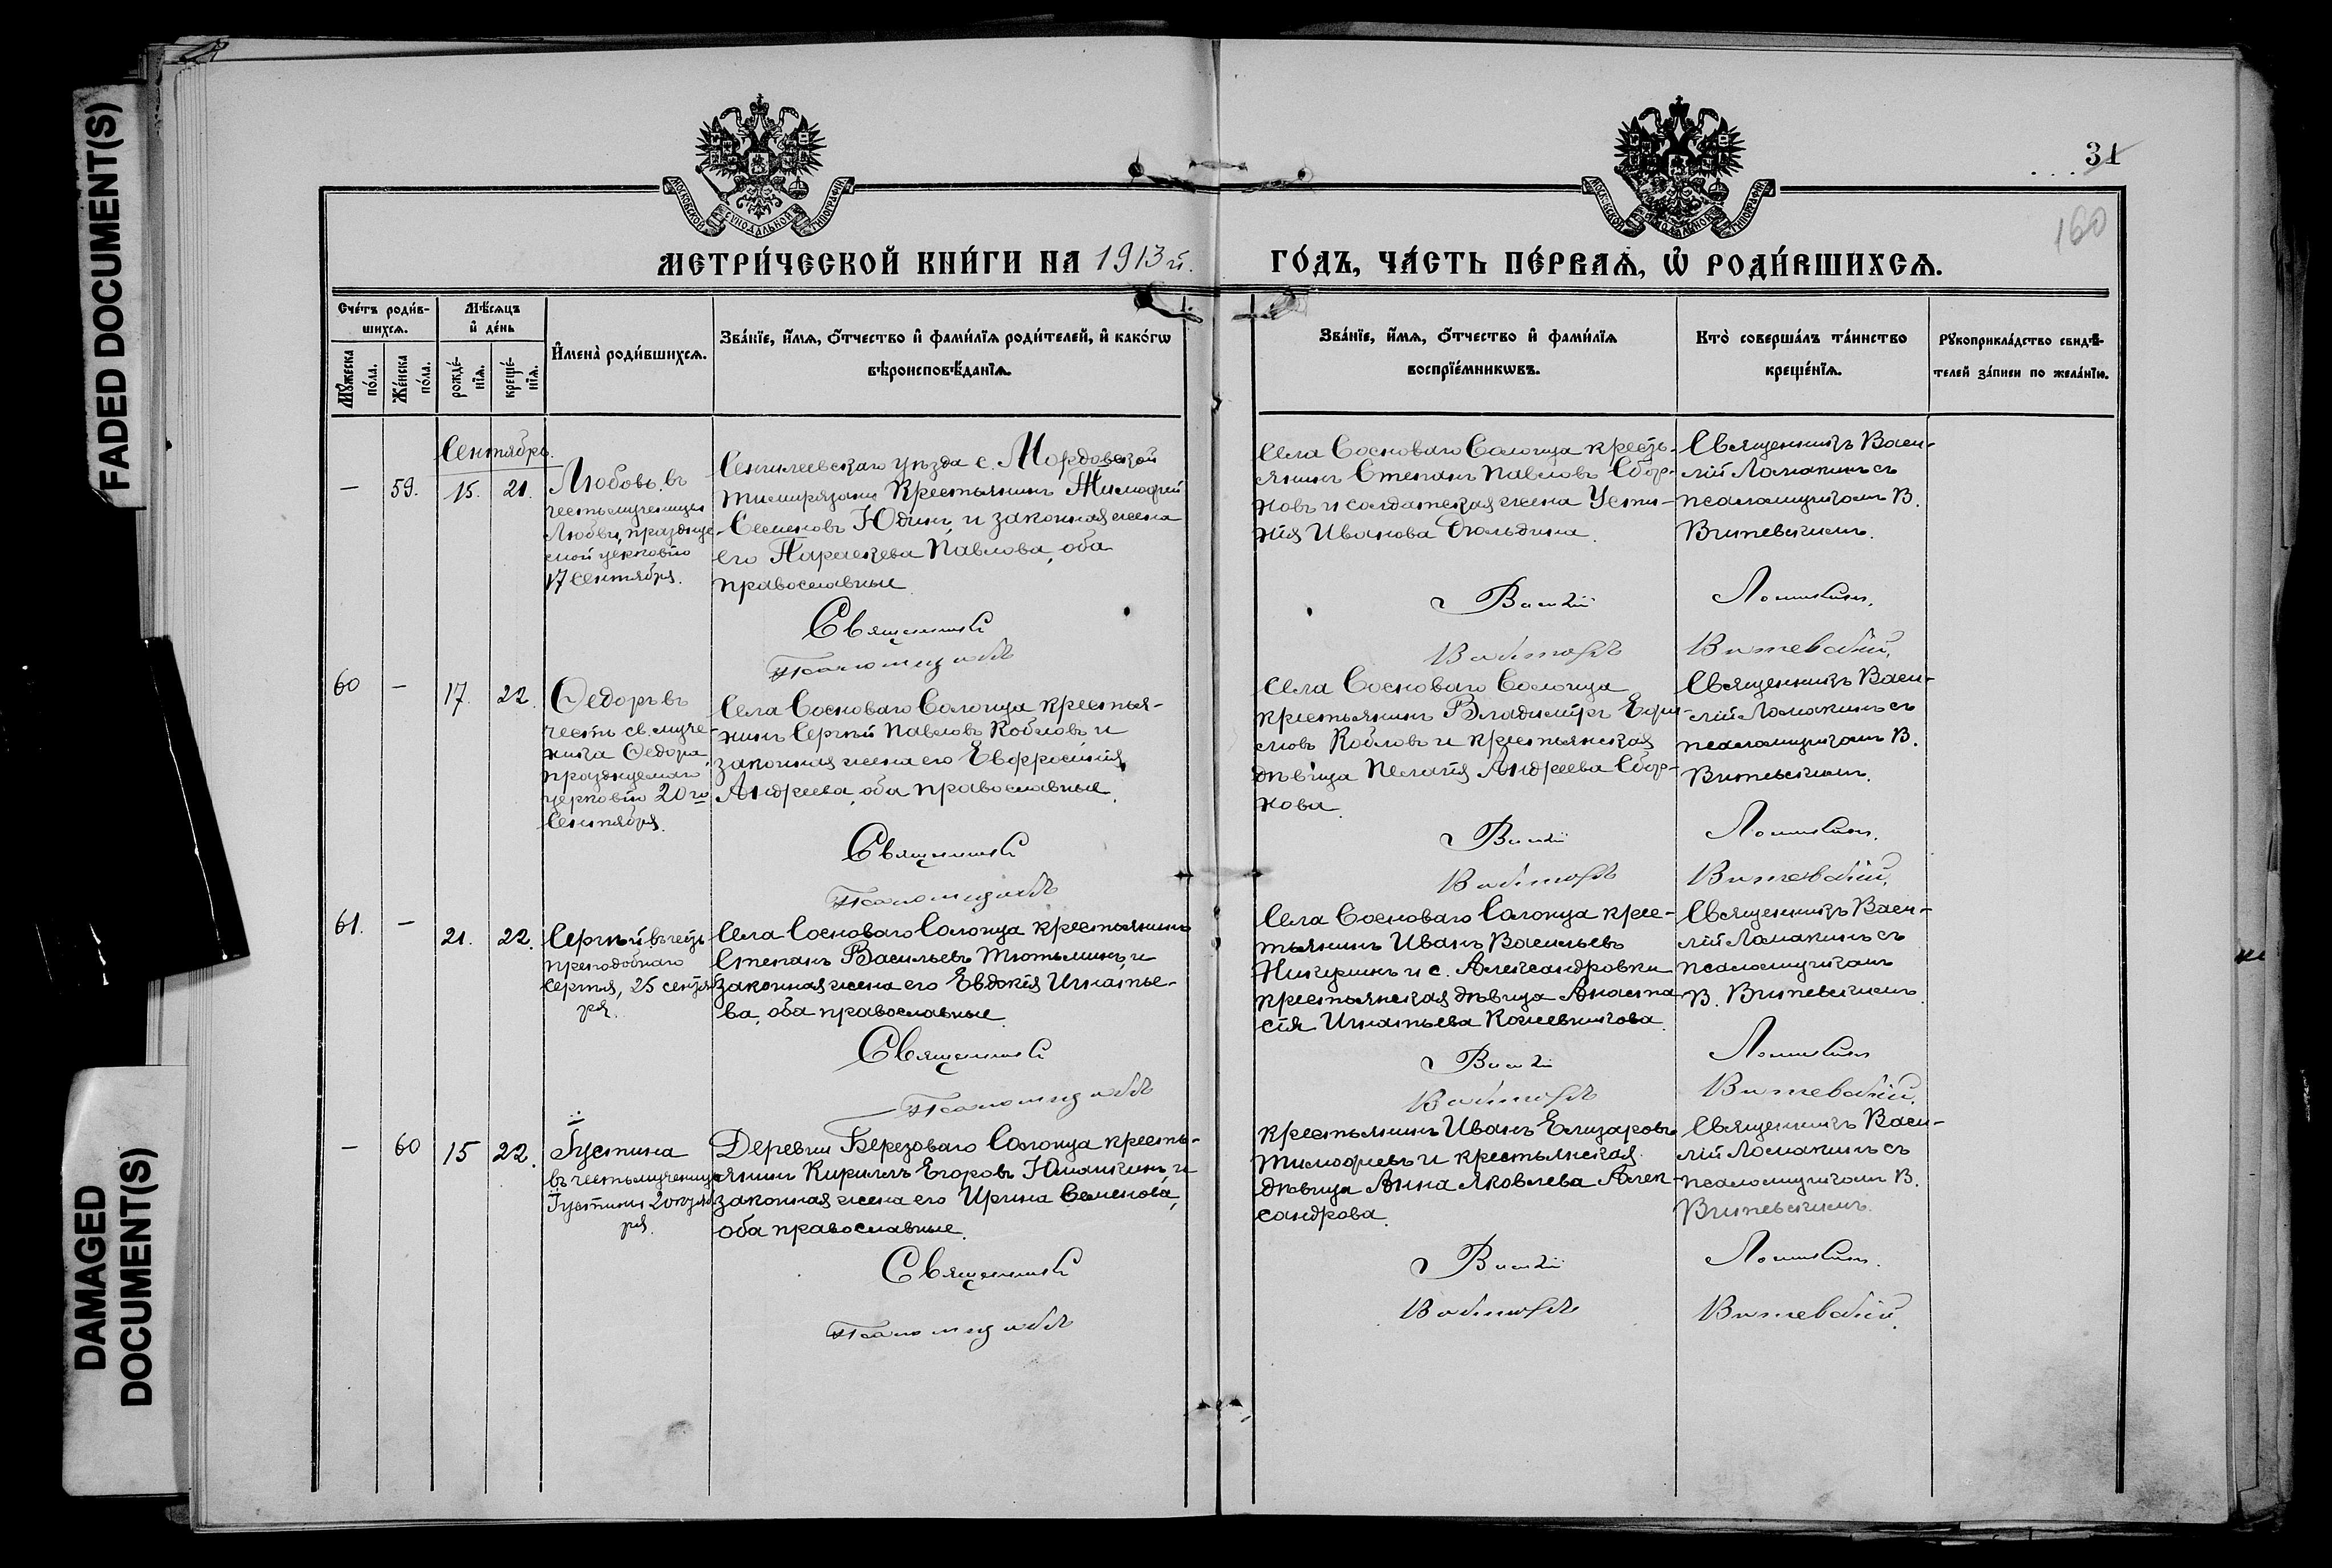 FADED DOCUMENT(S)
DAMAGED
DOCUMENT(S)
31
160
МОСКОВСКОЙ СУНОДАЛЬНОЙ ТИПОГРАФІИ
МОСКОВСКОЙ СУНОДАЛЬНОЙ ТИПОГРАФІИ
МЕТРИ́ЧЕСКОЙ КНИ́ГИ НА 1913 й.
ГО́ДЪ, ЧА́СТЬ ПЕ́РВАѦ, Ѡ РОДИ́ВШИХСѦ.
Сче́тъ роди́в-
шихсѧ.
Мѣ́сѧцъ
и҆ де́нь
Мꙋ́жеска
по́ла.
Же́нска
по́ла.
рожде́-
нїѧ.
креще́-
нїѧ.
И҆мена̀ роди́вшихсѧ.
Зва́нїе, и҆́мѧ, ѻ҆́тчество и҆ фами́лїѧ роди́телей, и҆ како́гѡ
вѣроисповѣ́данїѧ.
Зва́нїе, и҆́мѧ, ѻ҆́тчество и҆ фами́лїѧ
воспрїе́мникѡвъ.
Кто̀ соверша́лъ та́инство
креще́нїѧ.
Рꙋкоприкла́дство свидѣ́-
телей за́писи по жела́нїю.
Сентябрь.
— 59. 15. 21.
Любовь въ
честь мученицы
Любви, празднуе-
мой церковію
17 Сентября.
Сенгилеевскаго уѣзда с. Мордовской
Темирязани Крестьянинъ Тимофей
Семеновъ Юдинъ, и законная жена
его Параскева Павлова, оба
православные.
Священникъ
Псаломщикъ
Села Сосноваго Солонца кресть-
янинъ Степанъ Павловъ Сбор-
новъ и солдатская жена Усти-
нія Иванова
Василій
Викторъ
Священникъ Васи-
лій Ломакинъ съ
псаломщикомъ В.
Витевскимъ.
Ломакинъ.
Витевскій.
60 — 17. 22.
Ѳедоръ въ
честь св. муче-
ника Ѳедора,
празднуемаго
церковію 20 го
Сентября.
Села Сосноваго Солонца крестья-
нинъ Сергѣй Павловъ Кобловъ и
законная жена его Евфросинія
Андреева, оба православные.
Священникъ
Псаломщикъ
Села Сосноваго Солонца
крестьянинъ Владиміръ Ефи-
мовъ Кобловъ и крестьянская
дѣвица Пелагія Андреева Сбор-
нова.
Василій
Викторъ
Священникъ Васи-
лій Ломакинъ съ
псаломщикомъ В.
Витевскимъ.
Ломакинъ.
Витевскій.
61. — 21. 22.
Сергѣй въ честь
преподобнаго
Сергія, 25 сентяб-
ря.
Села Сосноваго Солонца крестьянинъ
Степанъ Васильевъ Тютькинъ, и
законная жена его Евдокія Игнатье-
ва, оба православные.
Священникъ
Псаломщикъ
Села Сосноваго Солонца крес-
тьянинъ Иванъ Васильевъ
и с. Александровки
крестьянская дѣвица Анаста-
сія Игнатьева Кожевникова.
Василій
Викторъ
Священникъ Васи-
лій Ломакинъ съ
псаломщикомъ
В. Витевскимъ.
Ломакинъ
Витевскій.
— 60 15 22.
Іустина
въ честь мученицы
Іустины 2 октяб-
ря.
Деревни Березоваго Солонца кресть-
янинъ Кириллъ Егоровъ и
законная жена его Ирина Семенова,
оба православные.
Священникъ
Псаломщикъ
Крестьянинъ Иванъ Елизаровъ
Тимофеевъ и крестьянская
дѣвица Анна Яковлева Алек-
сандрова.
Василій
Викторъ
Священникъ Васи-
лій Ломакинъ съ
псаломщикомъ В.
Витевскимъ.
Ломакинъ.
Витевскій.